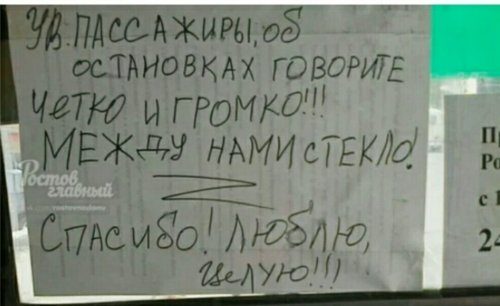 УВ. ПАССАЖИРЫ, ОБ
ОСТАНОВКАХ ГОВОРИТЕ
ЧЕТКО И ГРОМКО!!!
МЕЖДУ НАМИ СТЕКЛО!
СПАСИБО! ЛЮБЛЮ,
ЦЕЛУЮ!!!
Ростов
главный
П
Ро
с
24